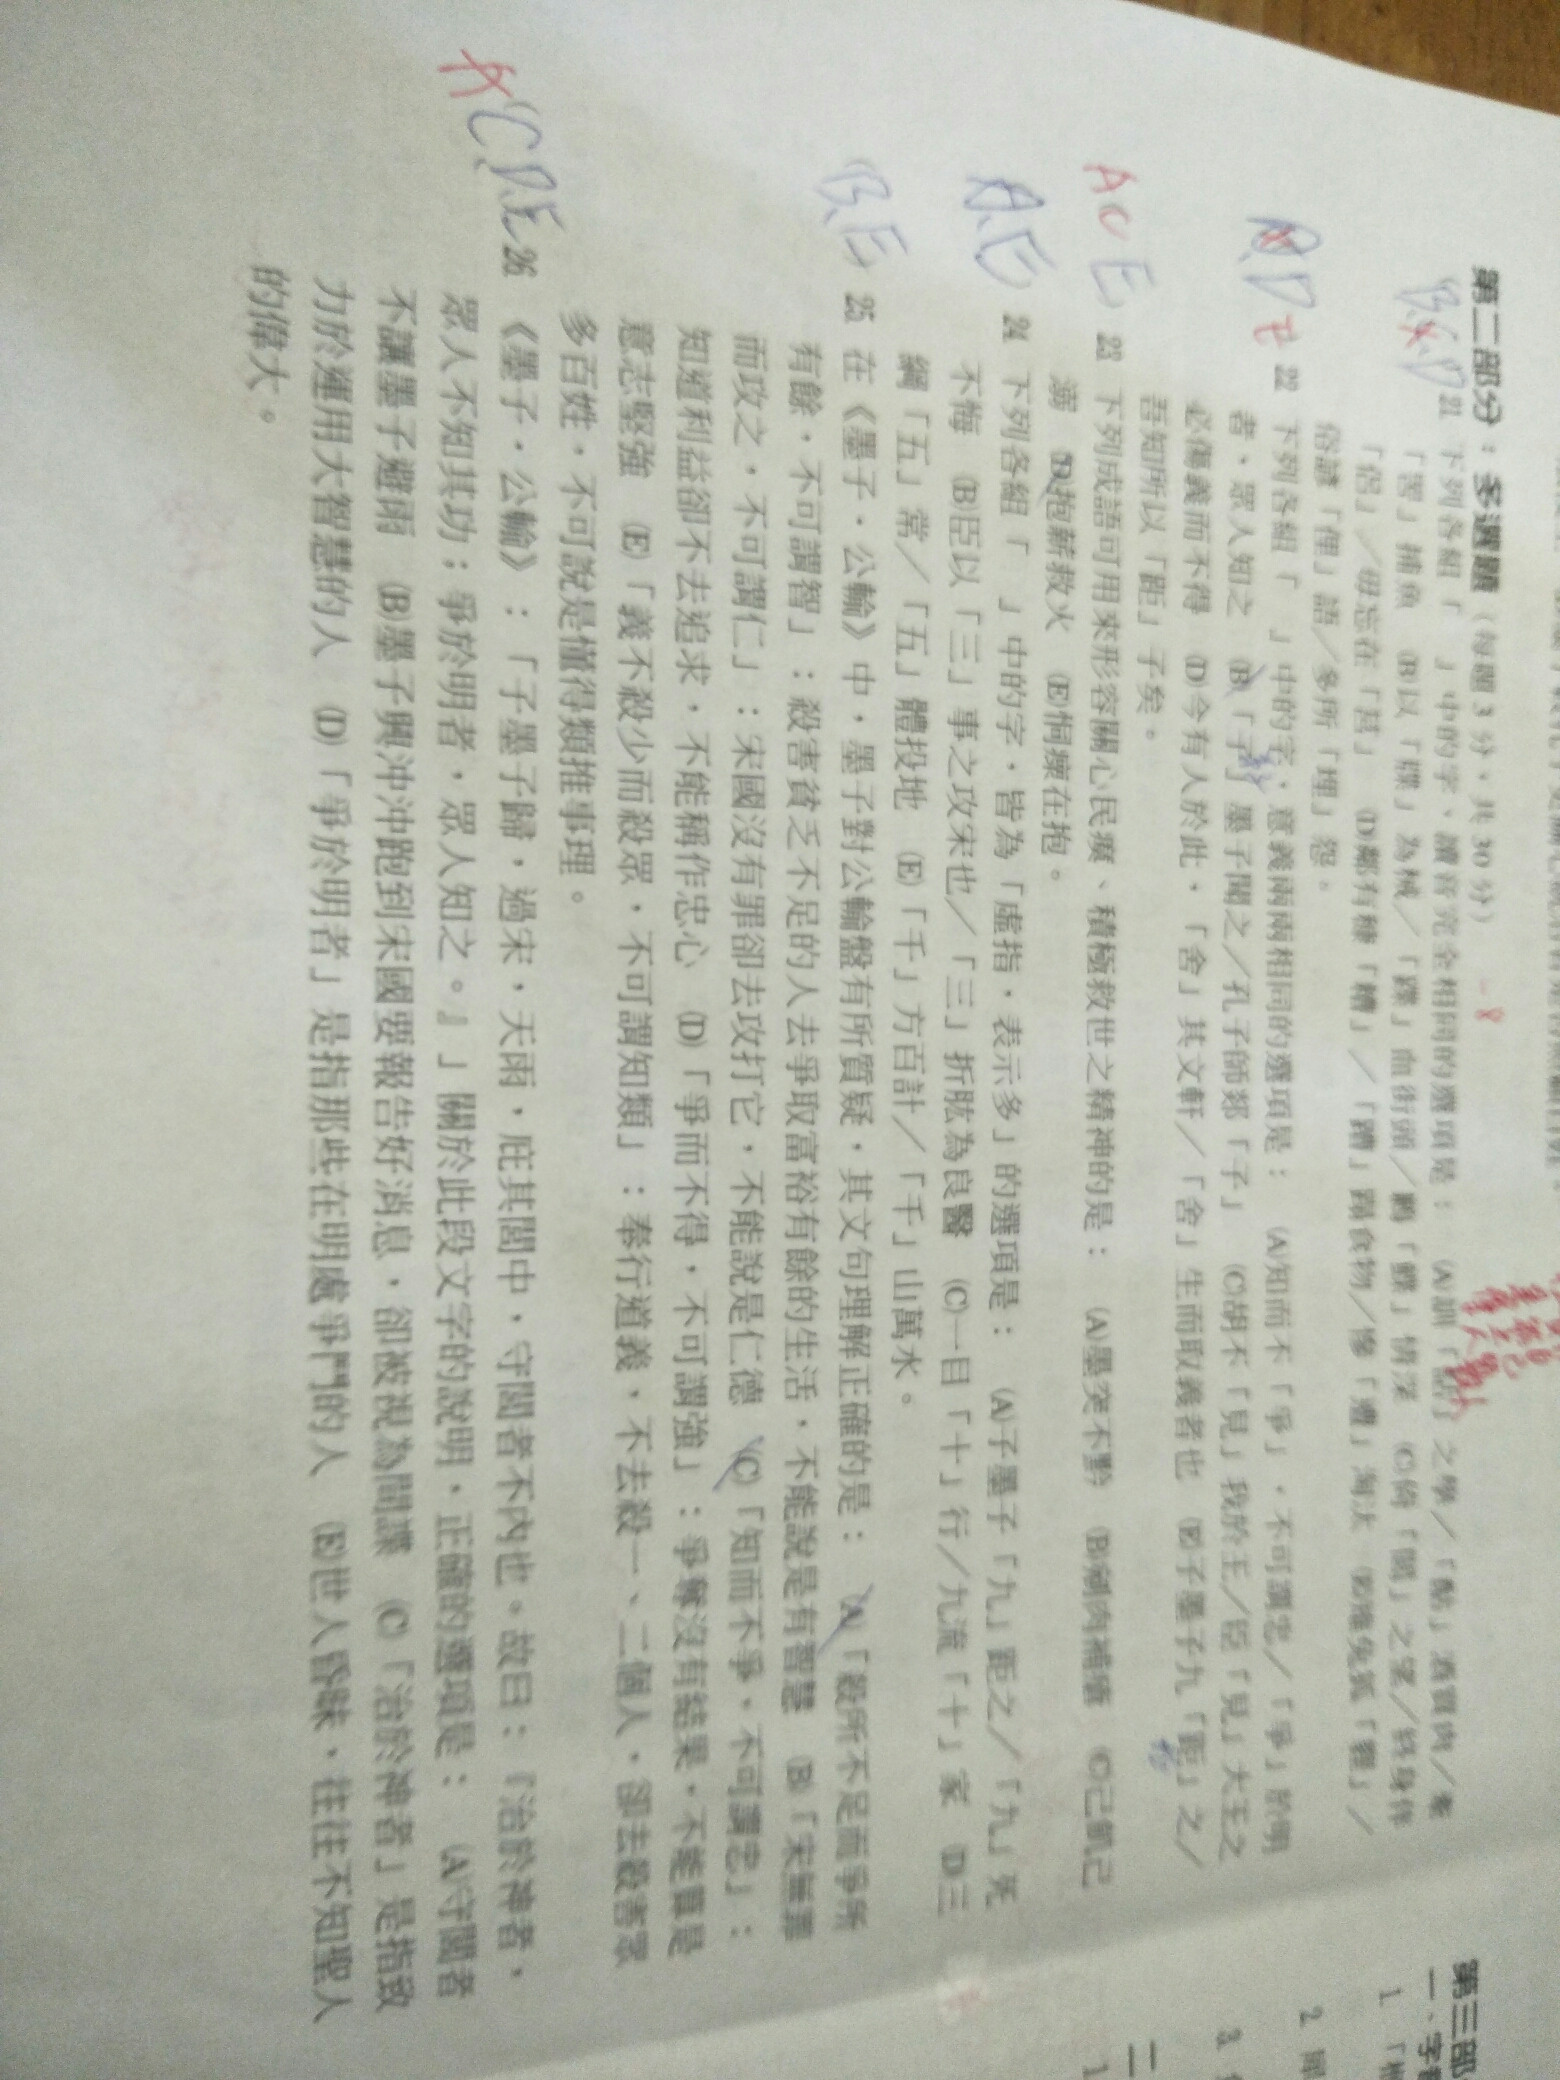 第二部分：多選題（每題3分，共30分） -8
B.C.D 21 下列各組「　」中的字，讀音完全相同的選項是： (A)訓「詁」之學／「酤」酒買肉／
「罟」捕魚 (B)以「牒」為械／「蹀」血街頭／鶼「鰈」情深 (C)倚「閭」之望／終身伴
「侶」／毋忘在「莒」 (D)鄰有糠「糟」／「蹧」蹋食物／慘「遭」淘汰 (E)雉兔狐「貍」／
俗諺「俚」語／多所「埋」怨。
22 下列各組「　」中的字，意義兩兩相同的選項是： (A)知而不「爭」，不可謂忠／「爭」於明
者，眾人知之 (B)「子」墨子聞之／孔子師郯「子」 (C)胡不「見」我於王／臣「見」大王之
必傷義而不得 (D)今有人於此，「舍」其文軒／「舍」生而取義者也 (E)子墨子九「距」之／
吾知所以「距」子矣。
A C E 23 下列成語可用來形容關心民瘼、積極救世之精神的是： (A)墨突不黔 (B)剜肉補瘡 (C)己飢己
溺 (D)抱薪救火 (E)恫瘝在抱。
A.E 24 下列各組「　」中的字，皆為「虛指，表示多」的選項是： (A)子墨子「九」距之／「九」死
不悔 (B)臣以「三」事之攻宋也／「三」折肱為良醫 (C)一目「十」行／九流「十」家 (D)三
綱「五」常／「五」體投地 (E)「千」方百計／「千」山萬水。
B.E 25 在《墨子．公輸》中，墨子對公輸盤有所質疑，其文句理解正確的是： (A)「殺所不足而爭所
有餘，不可謂智」：殺害貧乏不足的人去爭取富裕有餘的生活，不能說是有智慧 (B)「宋無罪
而攻之，不可謂仁」：宋國沒有罪卻去攻打它，不能說是仁德 (C)「知而不爭，不可謂忠」：
知道利益卻不去追求，不能稱作忠心 (D)「爭而不得，不可謂強」：爭奪沒有結果，不能算是
意志堅強 (E)「義不殺少而殺眾，不可謂知類」：奉行道義，不去殺一、二個人，卻去殺害眾
多百姓，不可說是懂得類推事理。
C.D.E 26 《墨子．公輸》：「子墨子歸，過宋，天雨，庇其閭中，守閭者不內也。故曰：『治於神者，
眾人不知其功；爭於明者，眾人知之。』」關於此段文字的說明，正確的選項是： (A)守閭者
不讓墨子避雨 (B)墨子興沖沖跑到宋國要報告好消息，卻被視為間諜 (C)「治於神者」是指致
力於運用大智慧的人 (D)「爭於明者」是指那些在明處爭鬥的人 (E)世人昏昧，往往不知聖人
的偉大。
第三部
一、字
1.
2.
3.
二
1.